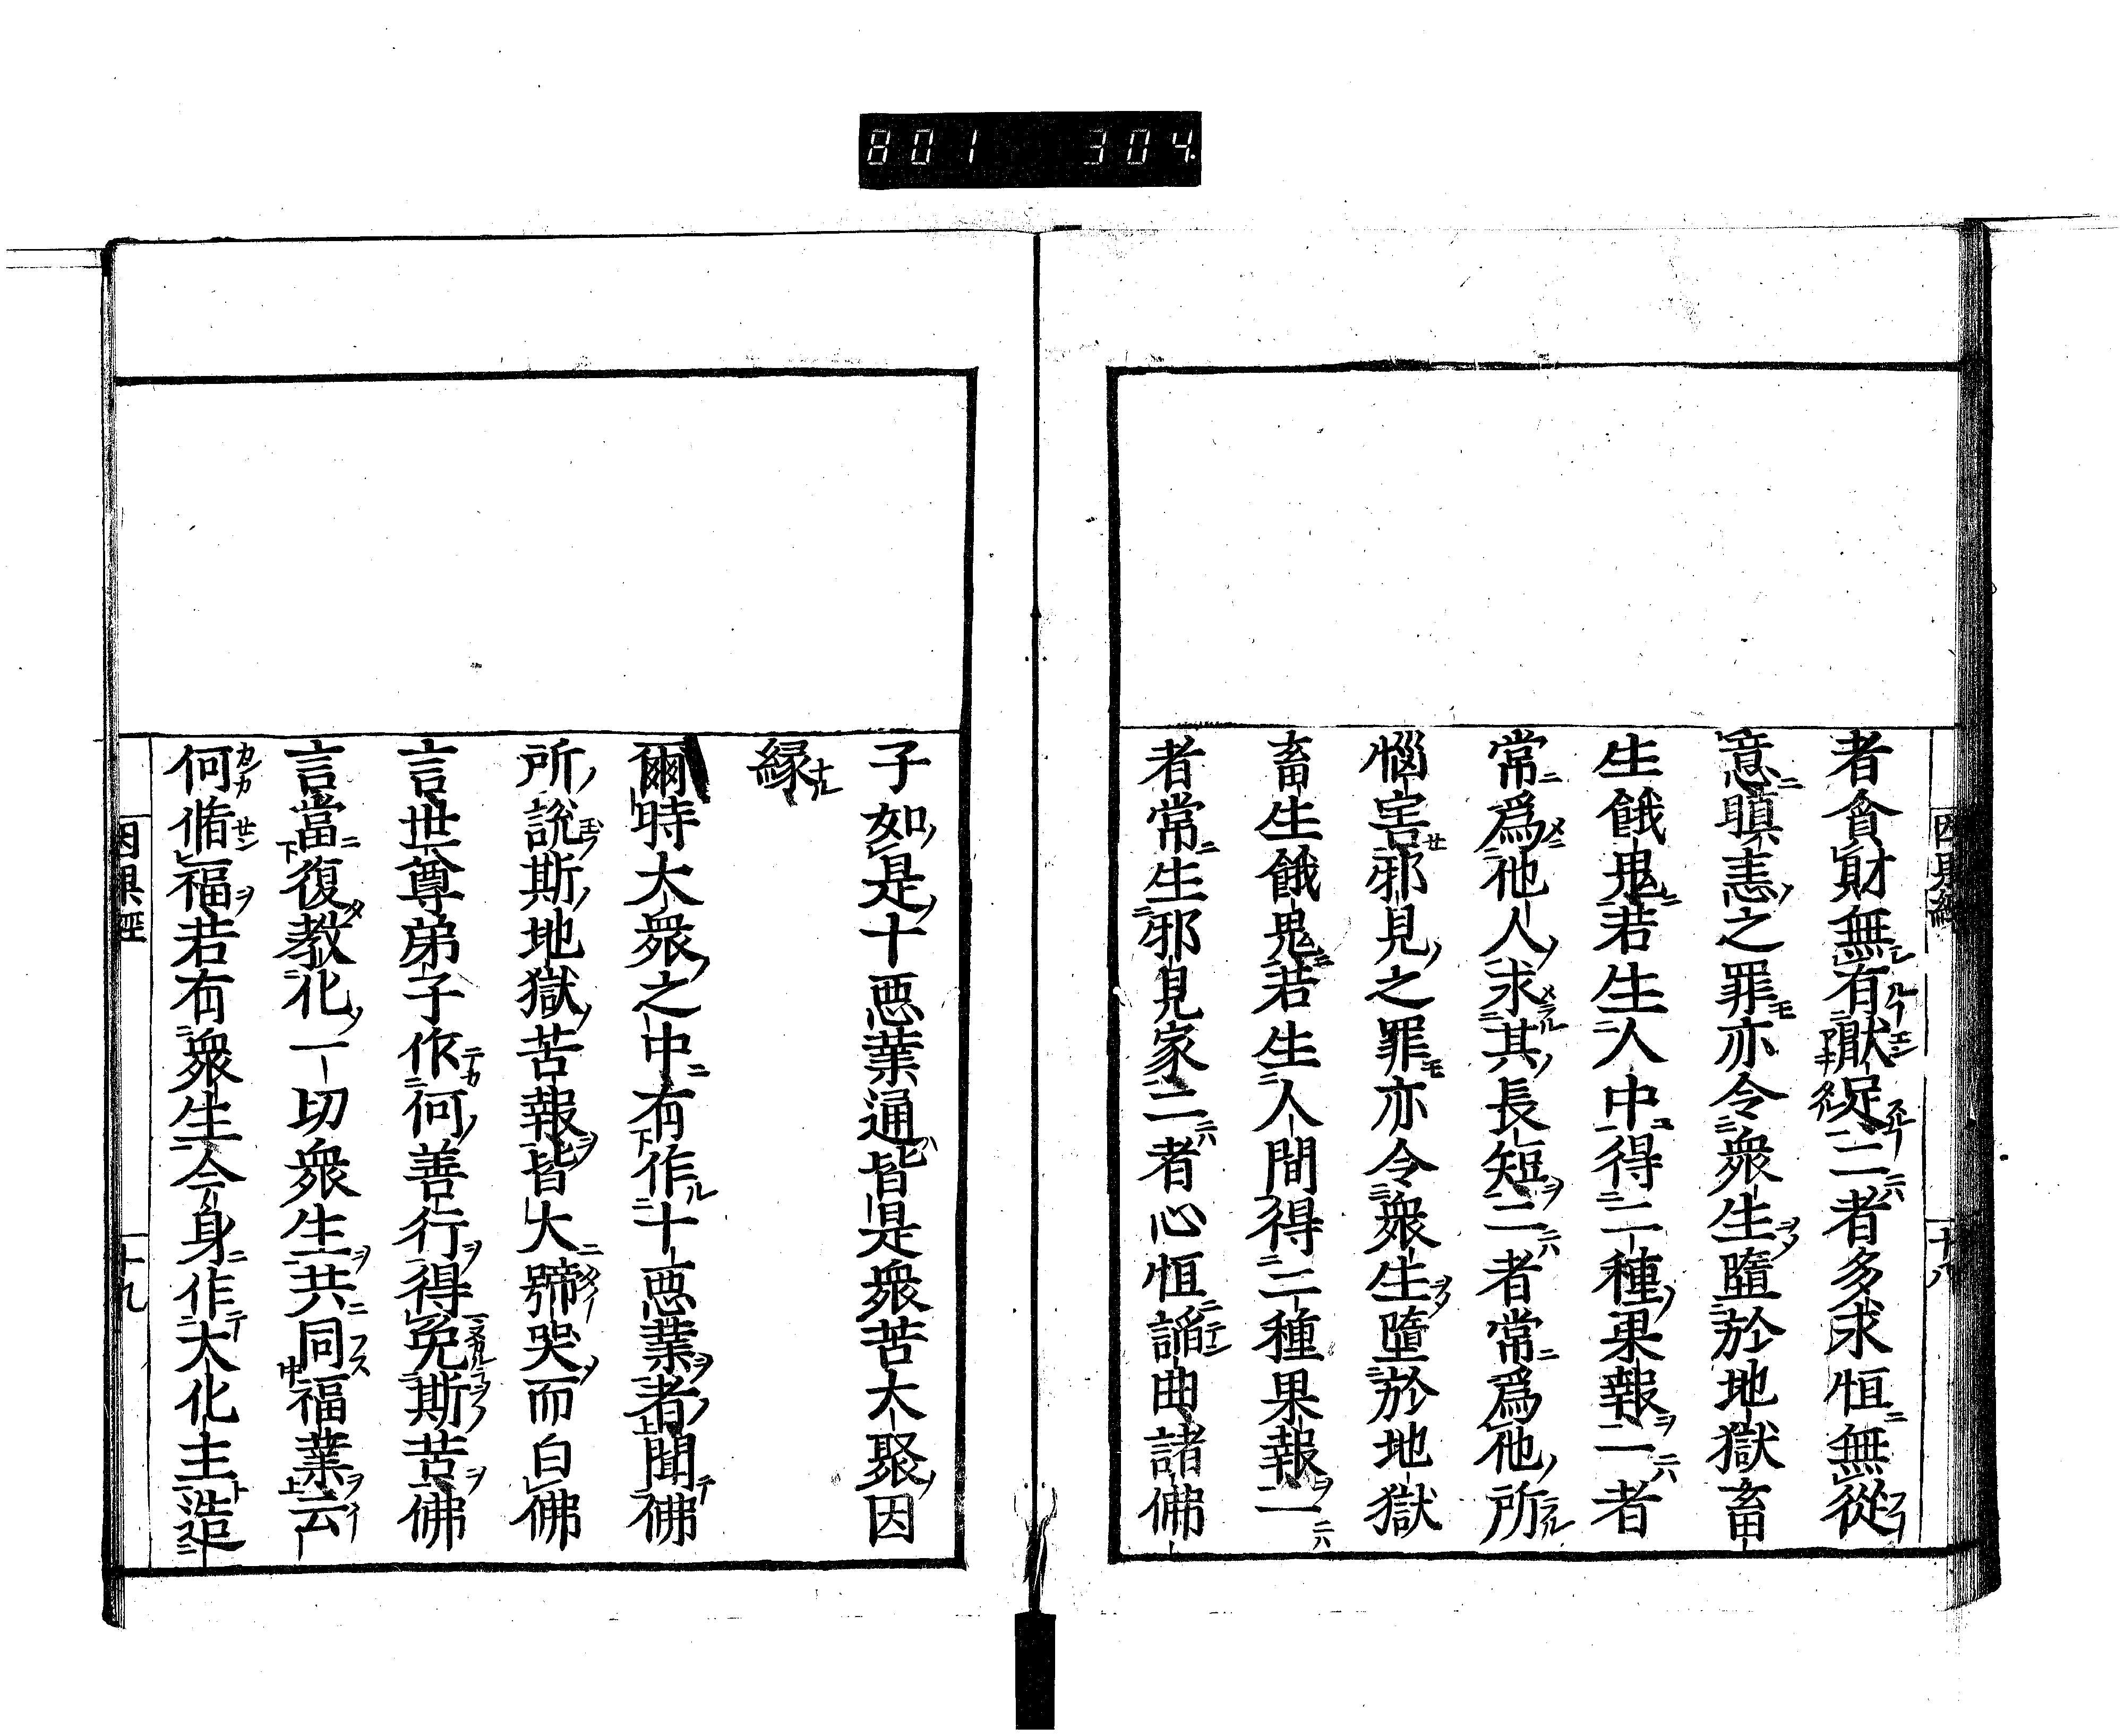 801 304
因果經 十八
者貪財無有猒足二者多求恒無從
意瞋恚之罪亦令衆生墮於地獄畜
生餓鬼若生人中得二種果報一者
常爲他人求其長短二者常爲他所
惱害邪見之罪亦令衆生墮於地獄
畜生餓鬼若生人間得二種果報一
者常生邪見家二者心恒謟曲諸佛
子如是十惡業通皆是衆苦大聚因
縁
爾時大衆之中有作十惡業者聞佛
所說斯地獄苦報皆大號哭而白佛
言世尊弟子作何善行得免斯苦佛
言當復教化一切衆生共同福業云
何脩福若有衆生今身作大化主造
因果經 十九